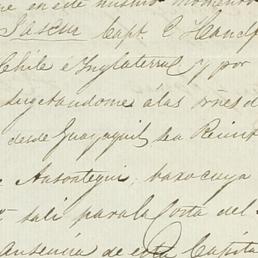 en este mismo momento
Capt. C
Chile é Inglaterra y por
sugetandome á las ōnes d
desde Guayaquil ha
Ansontegui, baxo cuya
sali para la Costa del
Ausencia de esta Capita